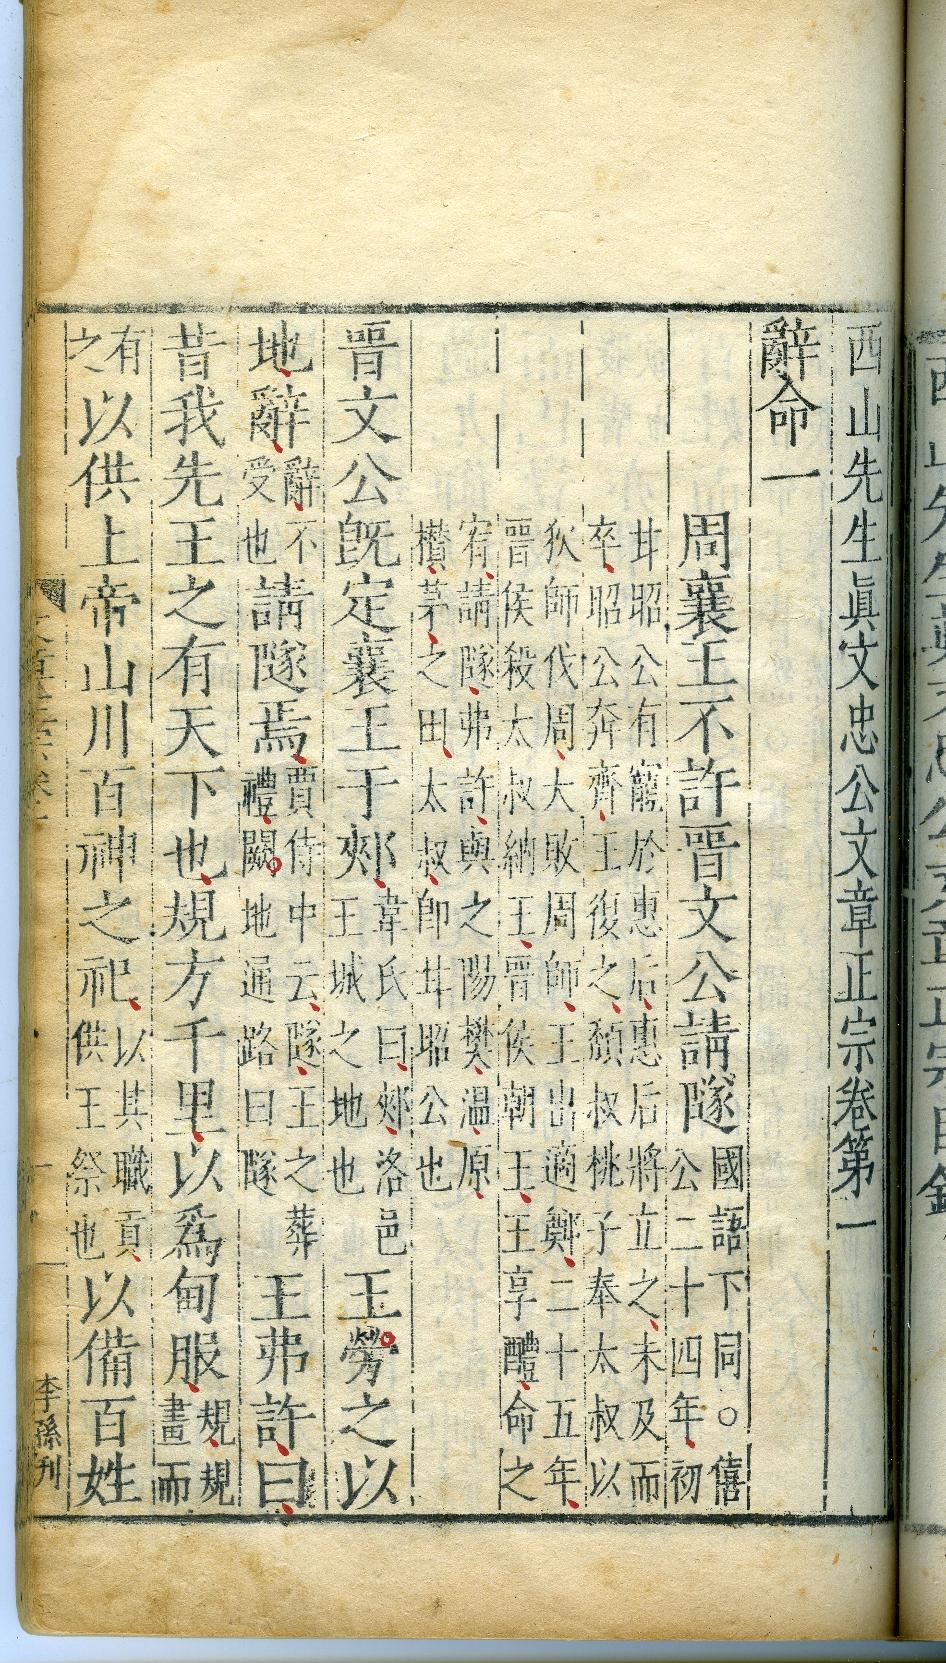 西山先生眞文忠公文章正宗卷第一
辭命一
周襄王不許晉文公請隧國語下同○僖公二十四年初
甘昭公有寵於惠后惠后將立之未及而卒昭公奔齊王復之頽叔桃子奉太叔以
狄師伐周大敗周師王出適鄭二十五年晉侯殺太叔納王晉侯朝王王享醴命之
宥請隧弗許與之陽樊温原攢茅之田太叔卽甘昭公也
晉文公旣定襄王于郟韋氏曰郟洛邑王城之地也王勞之以
地辭辭不受也請隧焉賈侍中云隧王之葬禮闕地通路曰隧王弗許曰
昔我先王之有天下也規方千里以爲甸服規規畫而
有之以供上帝山川百神之祀以其職貢供王祭也以備百姓
李孫刊